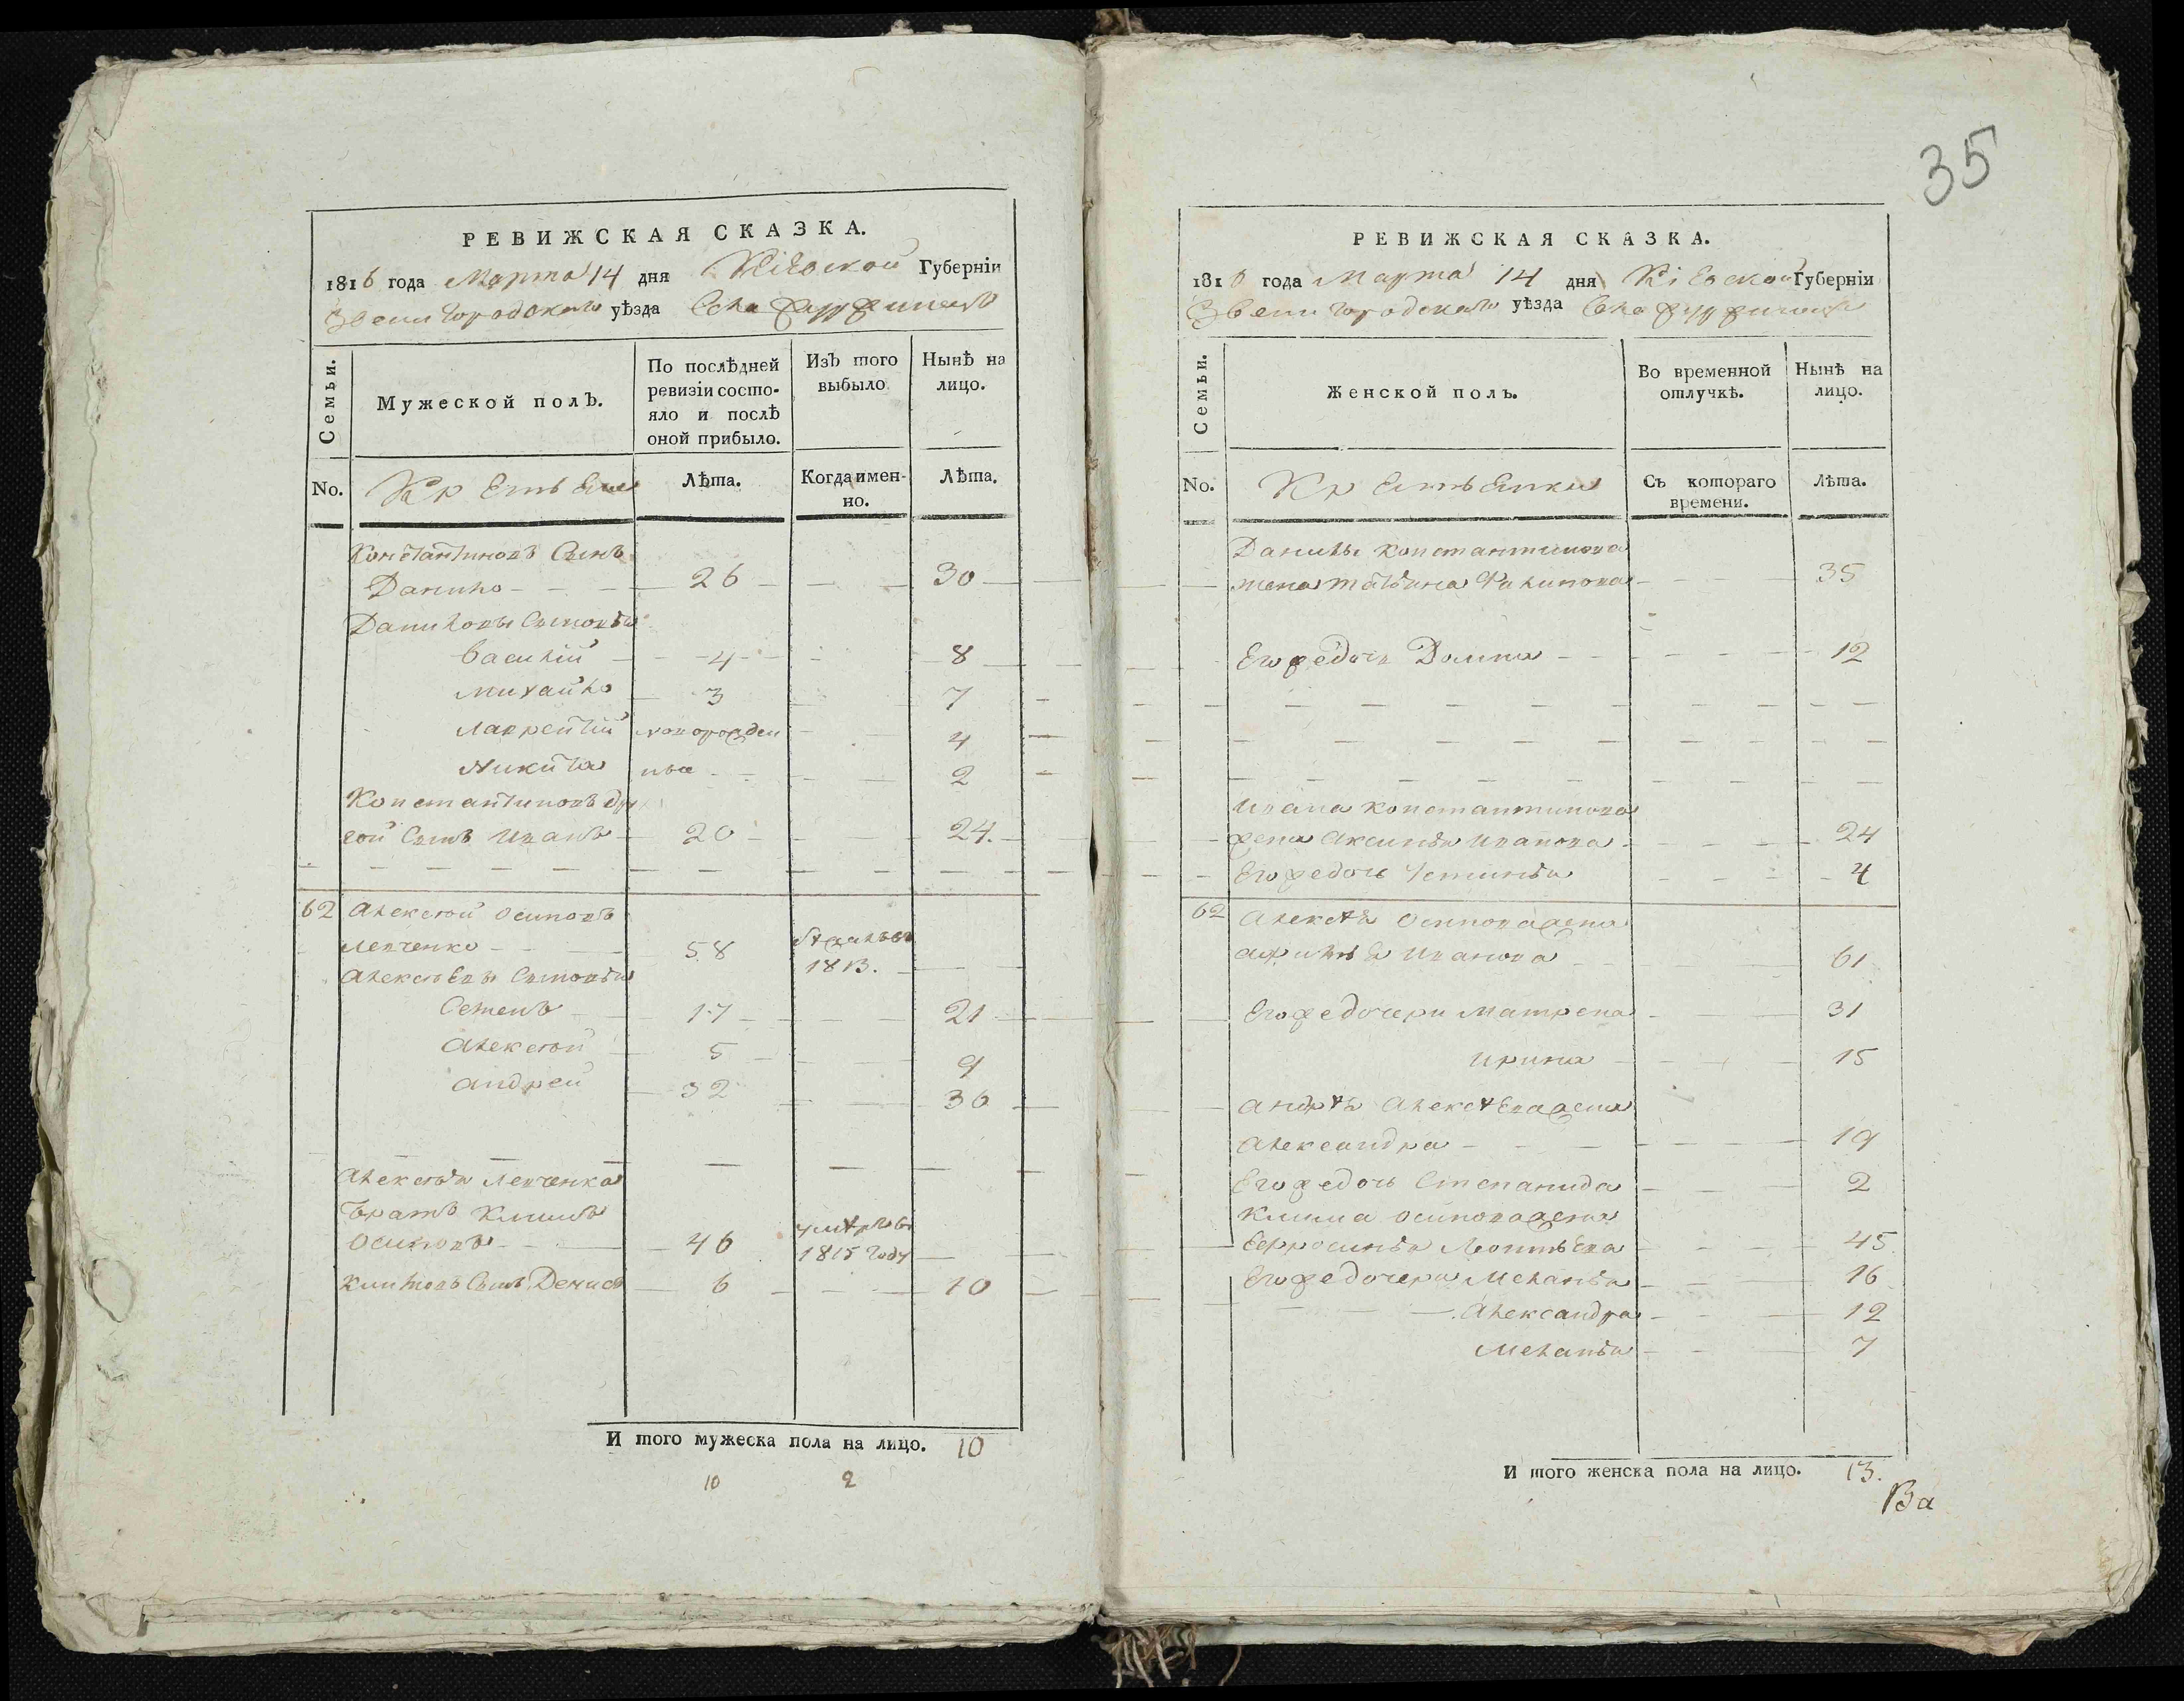 РЕВИЖСКАЯ СКАЗКА.
1816 года Марта 14 дня Кіевской Губерніи
Звенигородскаго уѣзда Села
Семьи.
Мужеской полъ.
По послѣдней ревизіи состояло и послѣ оной прибыло.
Изъ того выбыло
Нынѣ на лицо.
No.
Крестьяне
Лѣта.
Когда имен-
но.
Лѣта.
Константиновъ Сынъ
Данило 26 30
Даниловы Сыновья
Василій 4 8
Михайло 3 7
Лаврентій новорожден 4
Никита ные 2
Константиновъ дру
гой Сынъ Иванъ 20 24.
62 Алексѣй Осиповъ
Левченко 58 1813.
Алексѣевы Сыновья
Семенъ 17 21
Алексѣй 5 9
Андрей 32 36
Алексѣя Левченка
братъ Климъ
Осиповъ 46 умѣръ въ 1815 году
Климовъ Сынъ Денисъ 6 10
И того мужеска пола на лицо. 10
10 2
35
РЕВИЖСКАЯ СКАЗКА.
1816 года Марта 14 дня Кіевской Губерніи
Звенигородскаго уѣзда Села
Семьи.
Женской полъ.
Во временной отлучкѣ.
Нынѣ на лицо.
No.
Крестьянки
Съ котораго
времени.
Лѣта.
Данилы Константинова
жена Татьяна Филипова 35
Егожедочь Домна 12
Ивана Константинова
жена Аксинья Иванова 24
Егожедочь Устинья 4
62 Алексѣя Осиповажена
Иванова 61
Егожедочери Матрена 31
Ирина 15
Андрѣя Алексѣеважена
Александра 19
Егожедочь Степанида 2
Клима Осиповажена
Ефросинья Леонтьева 45
Егожедочери Меланья 16
Александра 12
Меланья 7
И того женска пола на лицо. 13.
Ва